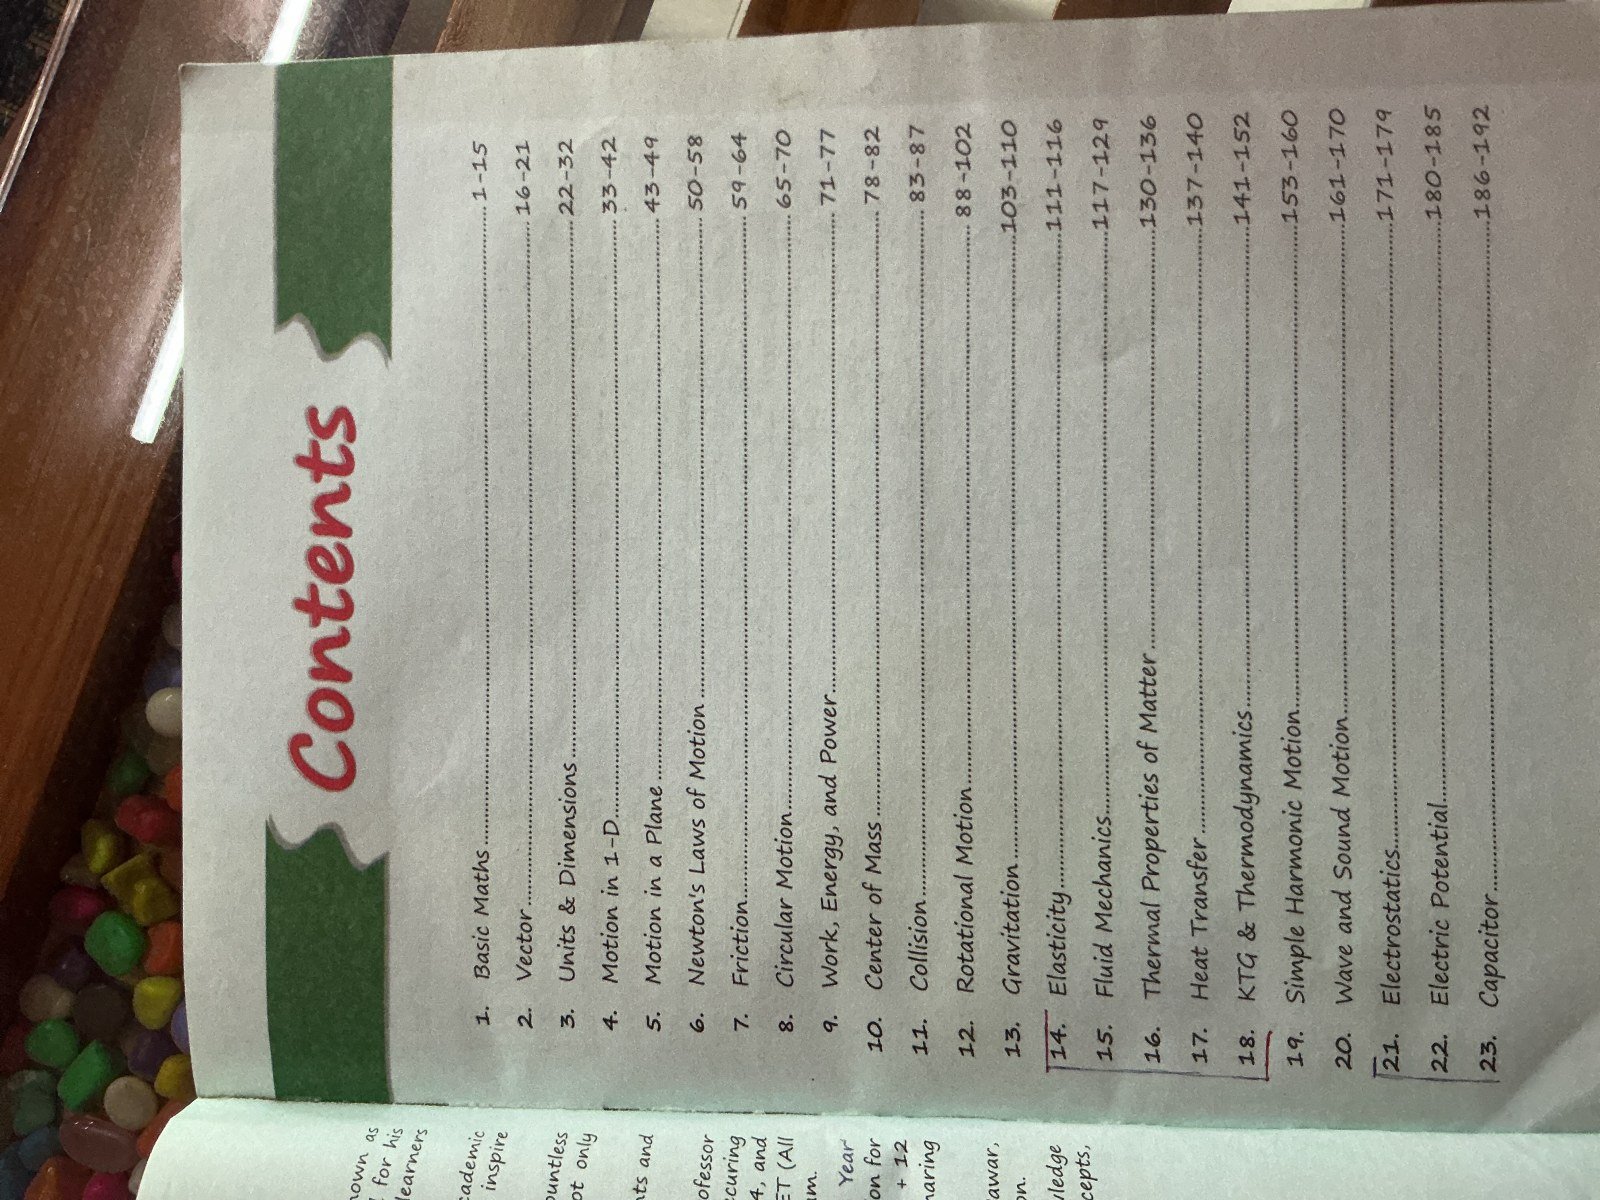 Contents
1. Basic Maths 1-15
2. Vector 16-21
3. Units & Dimensions 22-32
4. Motion in 1-D 33-42
5. Motion in a Plane 43-49
6. Newton's Laws of Motion 50-58
7. Friction 59-64
8. Circular Motion 65-70
9. Work, Energy, and Power 71-77
10. Center of Mass 78-82
11. Collision 83-87
12. Rotational Motion 88-102
13. Gravitation 103-110
14. Elasticity 111-116
15. Fluid Mechanics 117-129
16. Thermal Properties of Matter 130-136
17. Heat Transfer 137-140
18. KTG & Thermodynamics 141-152
19. Simple Harmonic Motion 153-160
20. Wave and Sound Motion 161-170
21. Electrostatics 171-179
22. Electric Potential 180-185
23. Capacitor 186-192
as
for his
learners
inspire
not only
and
and
(All
Year
for
+ 12